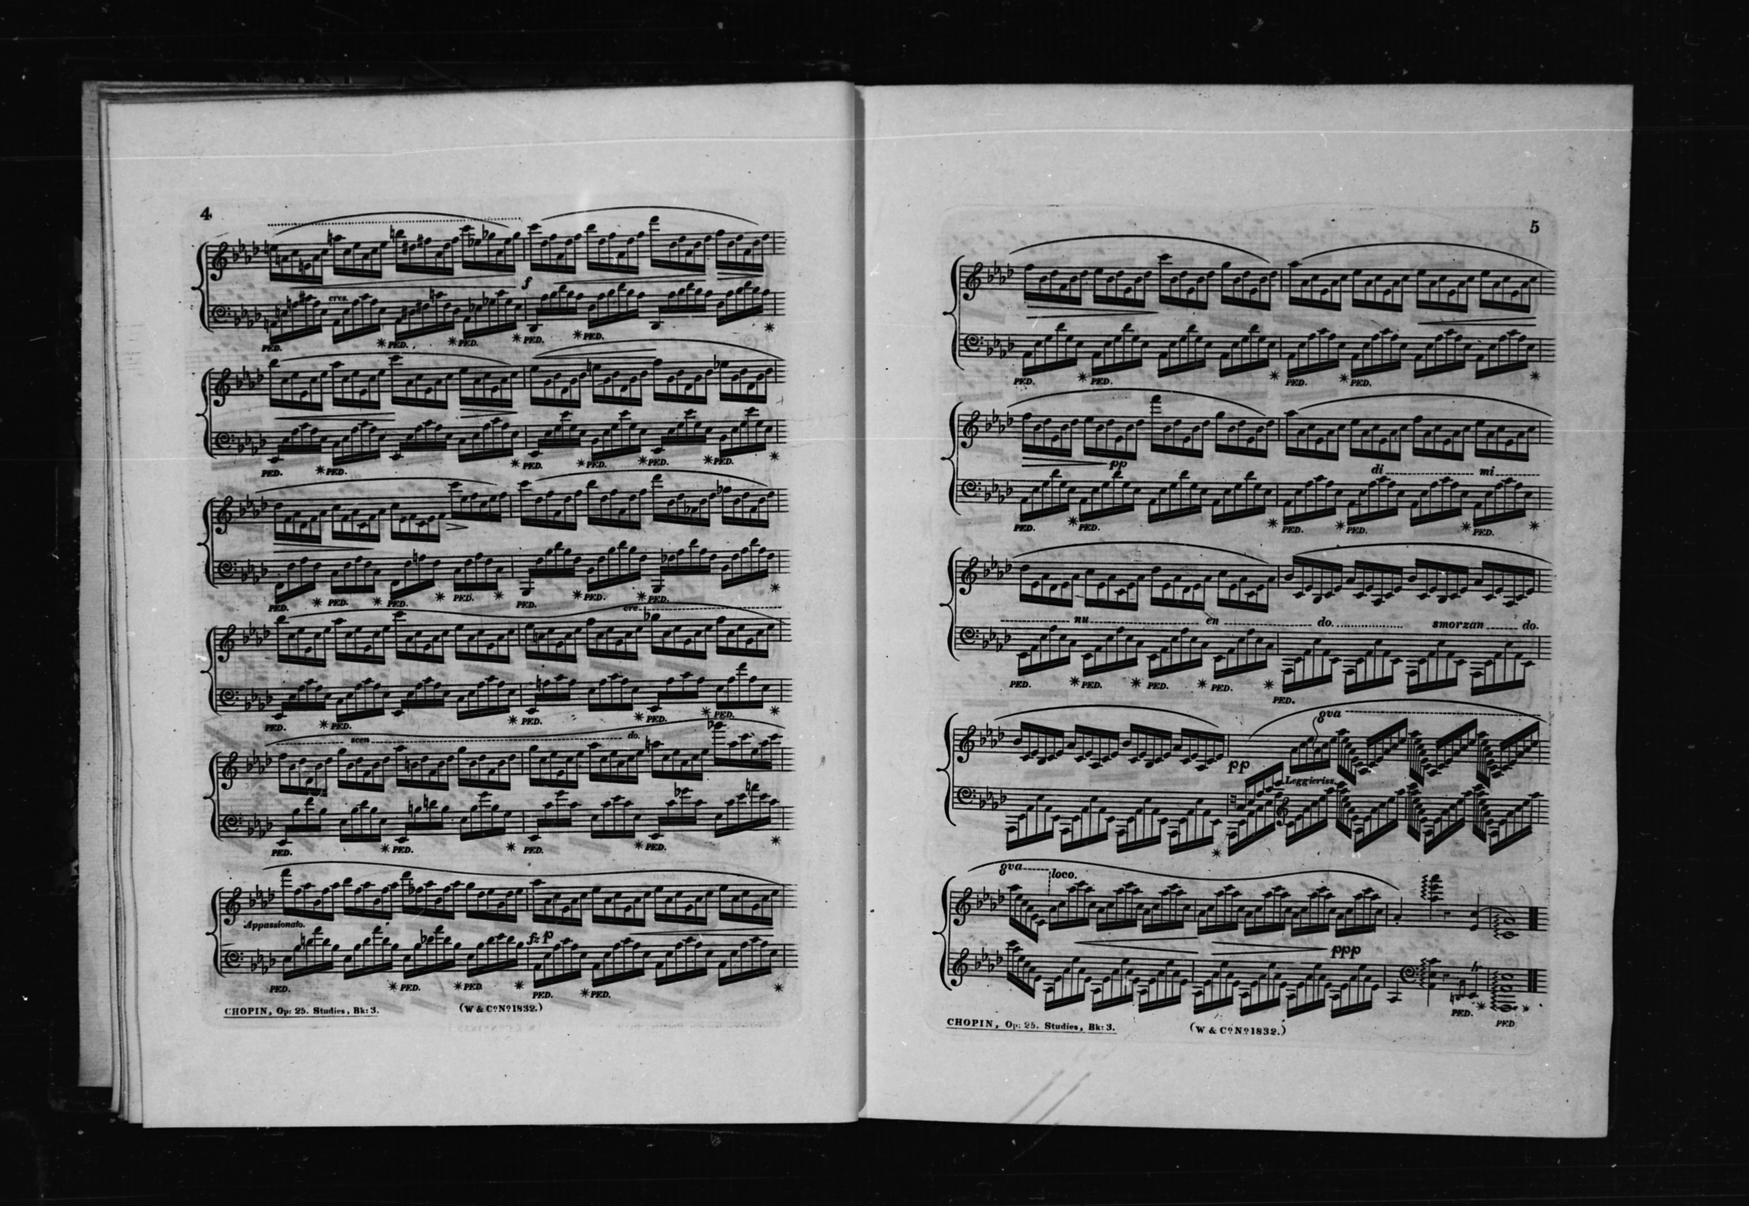 4
cres.
f
PED. * PED. * PED. * PED. * PED. *
PED. * PED. * PED. * PED. * PED. * PED. *
PED. * PED. * PED. * PED. * PED. * PED. * PED. *
cre
PED. * PED. * PED. * PED. * PED. *
scen do.
PED. * PED. * PED. * PED. *
Appassionato.
fz p
PED. * PED. * PED. * PED. * PED. *
CHOPIN, Op: 25. Studies, Bk: 3.
(W & Co. No. 1832.)
5
PED. * PED. * PED. * PED. *
pp
di mi
PED. * PED. * PED. * PED. * PED. *
nu en do. smorzan do.
PED. * PED. * PED. * PED. * PED.
8va
pp
Leggieriss.
*
8va loco.
ppp
PED. * PED *
CHOPIN, Op: 25. Studies, Bk: 3.
(W & Co. No. 1832.)